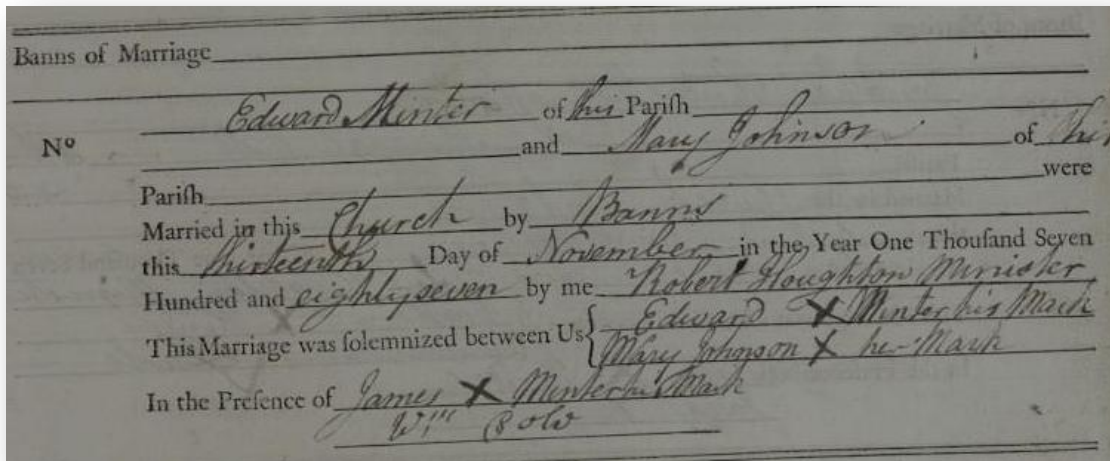 Banns of Marriage
Edward Minter of this Pariſh
Nº and Mary Johnson of this
Pariſh were
Married in this Church by Banns
this thirteenth Day of November in the Year One Thouſand Seven
Hundred and eighty seven by me Robert Houghton Minister
This Marriage was ſolemnized between Us { Edward X Minter his Mark
Mary Johnson X her Mark
In the Preſence of James X Minter his Mark
Wm